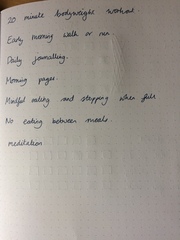 20 minute bodyweight workout.
Early morning walk or run
Daily journalling.
Morning pages.
Mindful eating and stopping when full
No eating between meals.
meditation